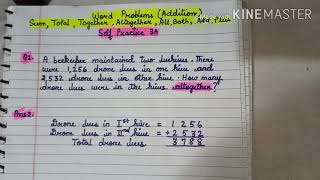 Word Problems (Addition)
Sum, Total, Together, Altogether, All, Both, Add, Plus
KINEMASTER
Self Practice 3A
Q1.
A beekeeper maintained two beehives. There
were 1,256 drone bees in one hive and
2,532 drone bees in other hive. How many
drone bees were in the hives altogether?
Ans:
Drone bees in Ist hive = 1 2 5 6
Drone bees in IInd hive = + 2 5 3 2
Total drone bees = 3 7 8 8